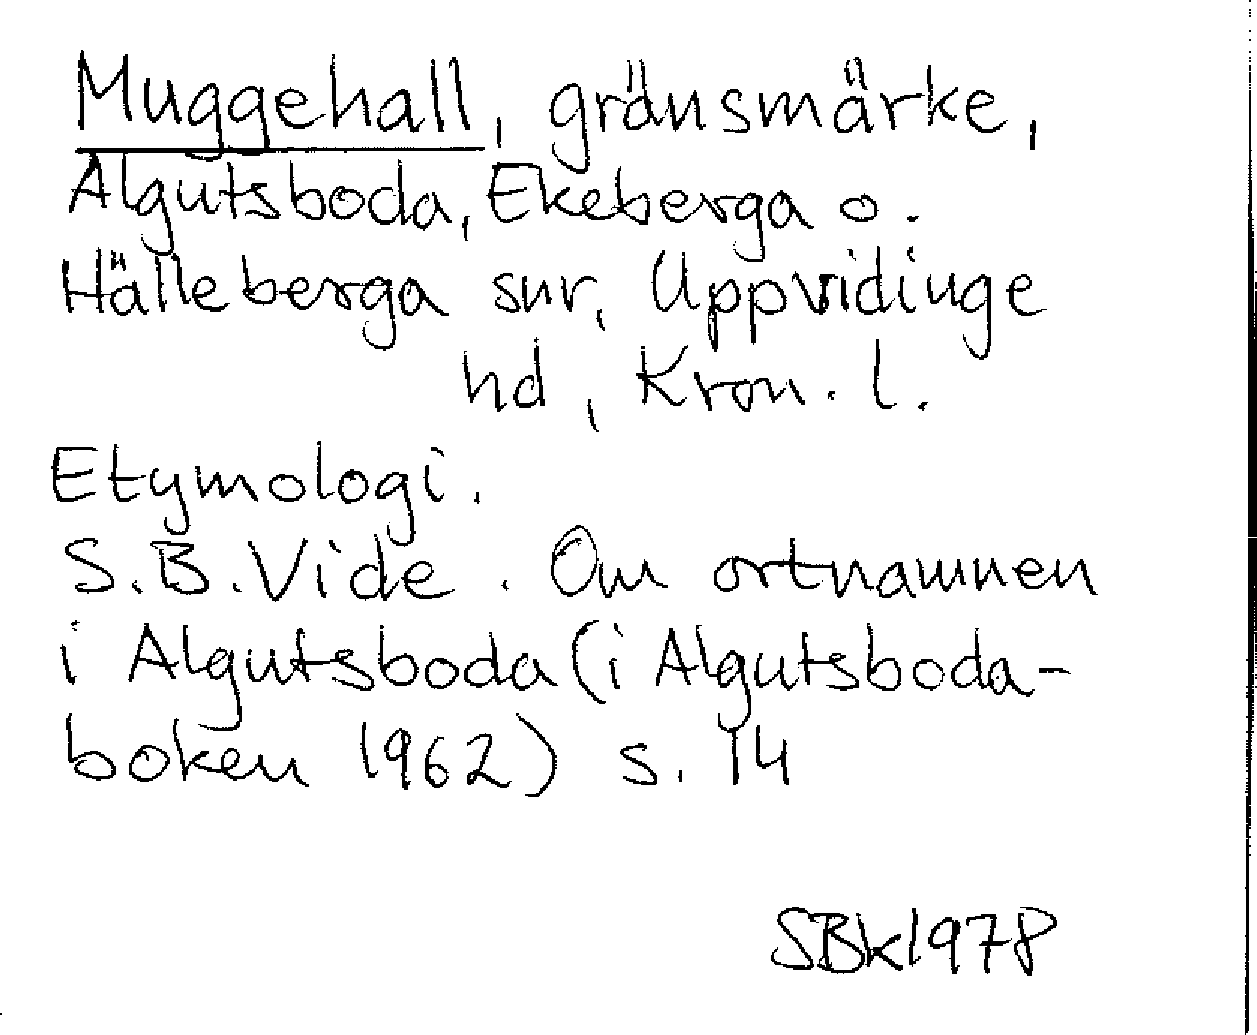 Muggehall, gränsmärke,
Algutsboda, Ekeberga o.
Hälleberga snr, Uppvidinge
hd, Kron. l.
Etymologi.
S.B. Vide. Om ortnamnen
i Algutsboda (i Algutsboda-
boken 1962) s. 14
SBk1978